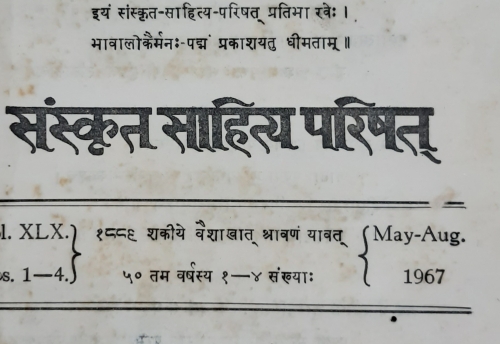 इयं संस्कृत-साहित्य-परिषत् प्रतिभा रवेः ।
भावालोकैर्मनः-पद्मं प्रकाशयतु धीमताम् ॥
संस्कृत साहित्य परिषत्
l. XLX. १८८९ शकीये वैशाखात् श्रावणं यावत् May-Aug.
s. 1—4. ५० तम वर्षस्य १—४ संख्याः 1967